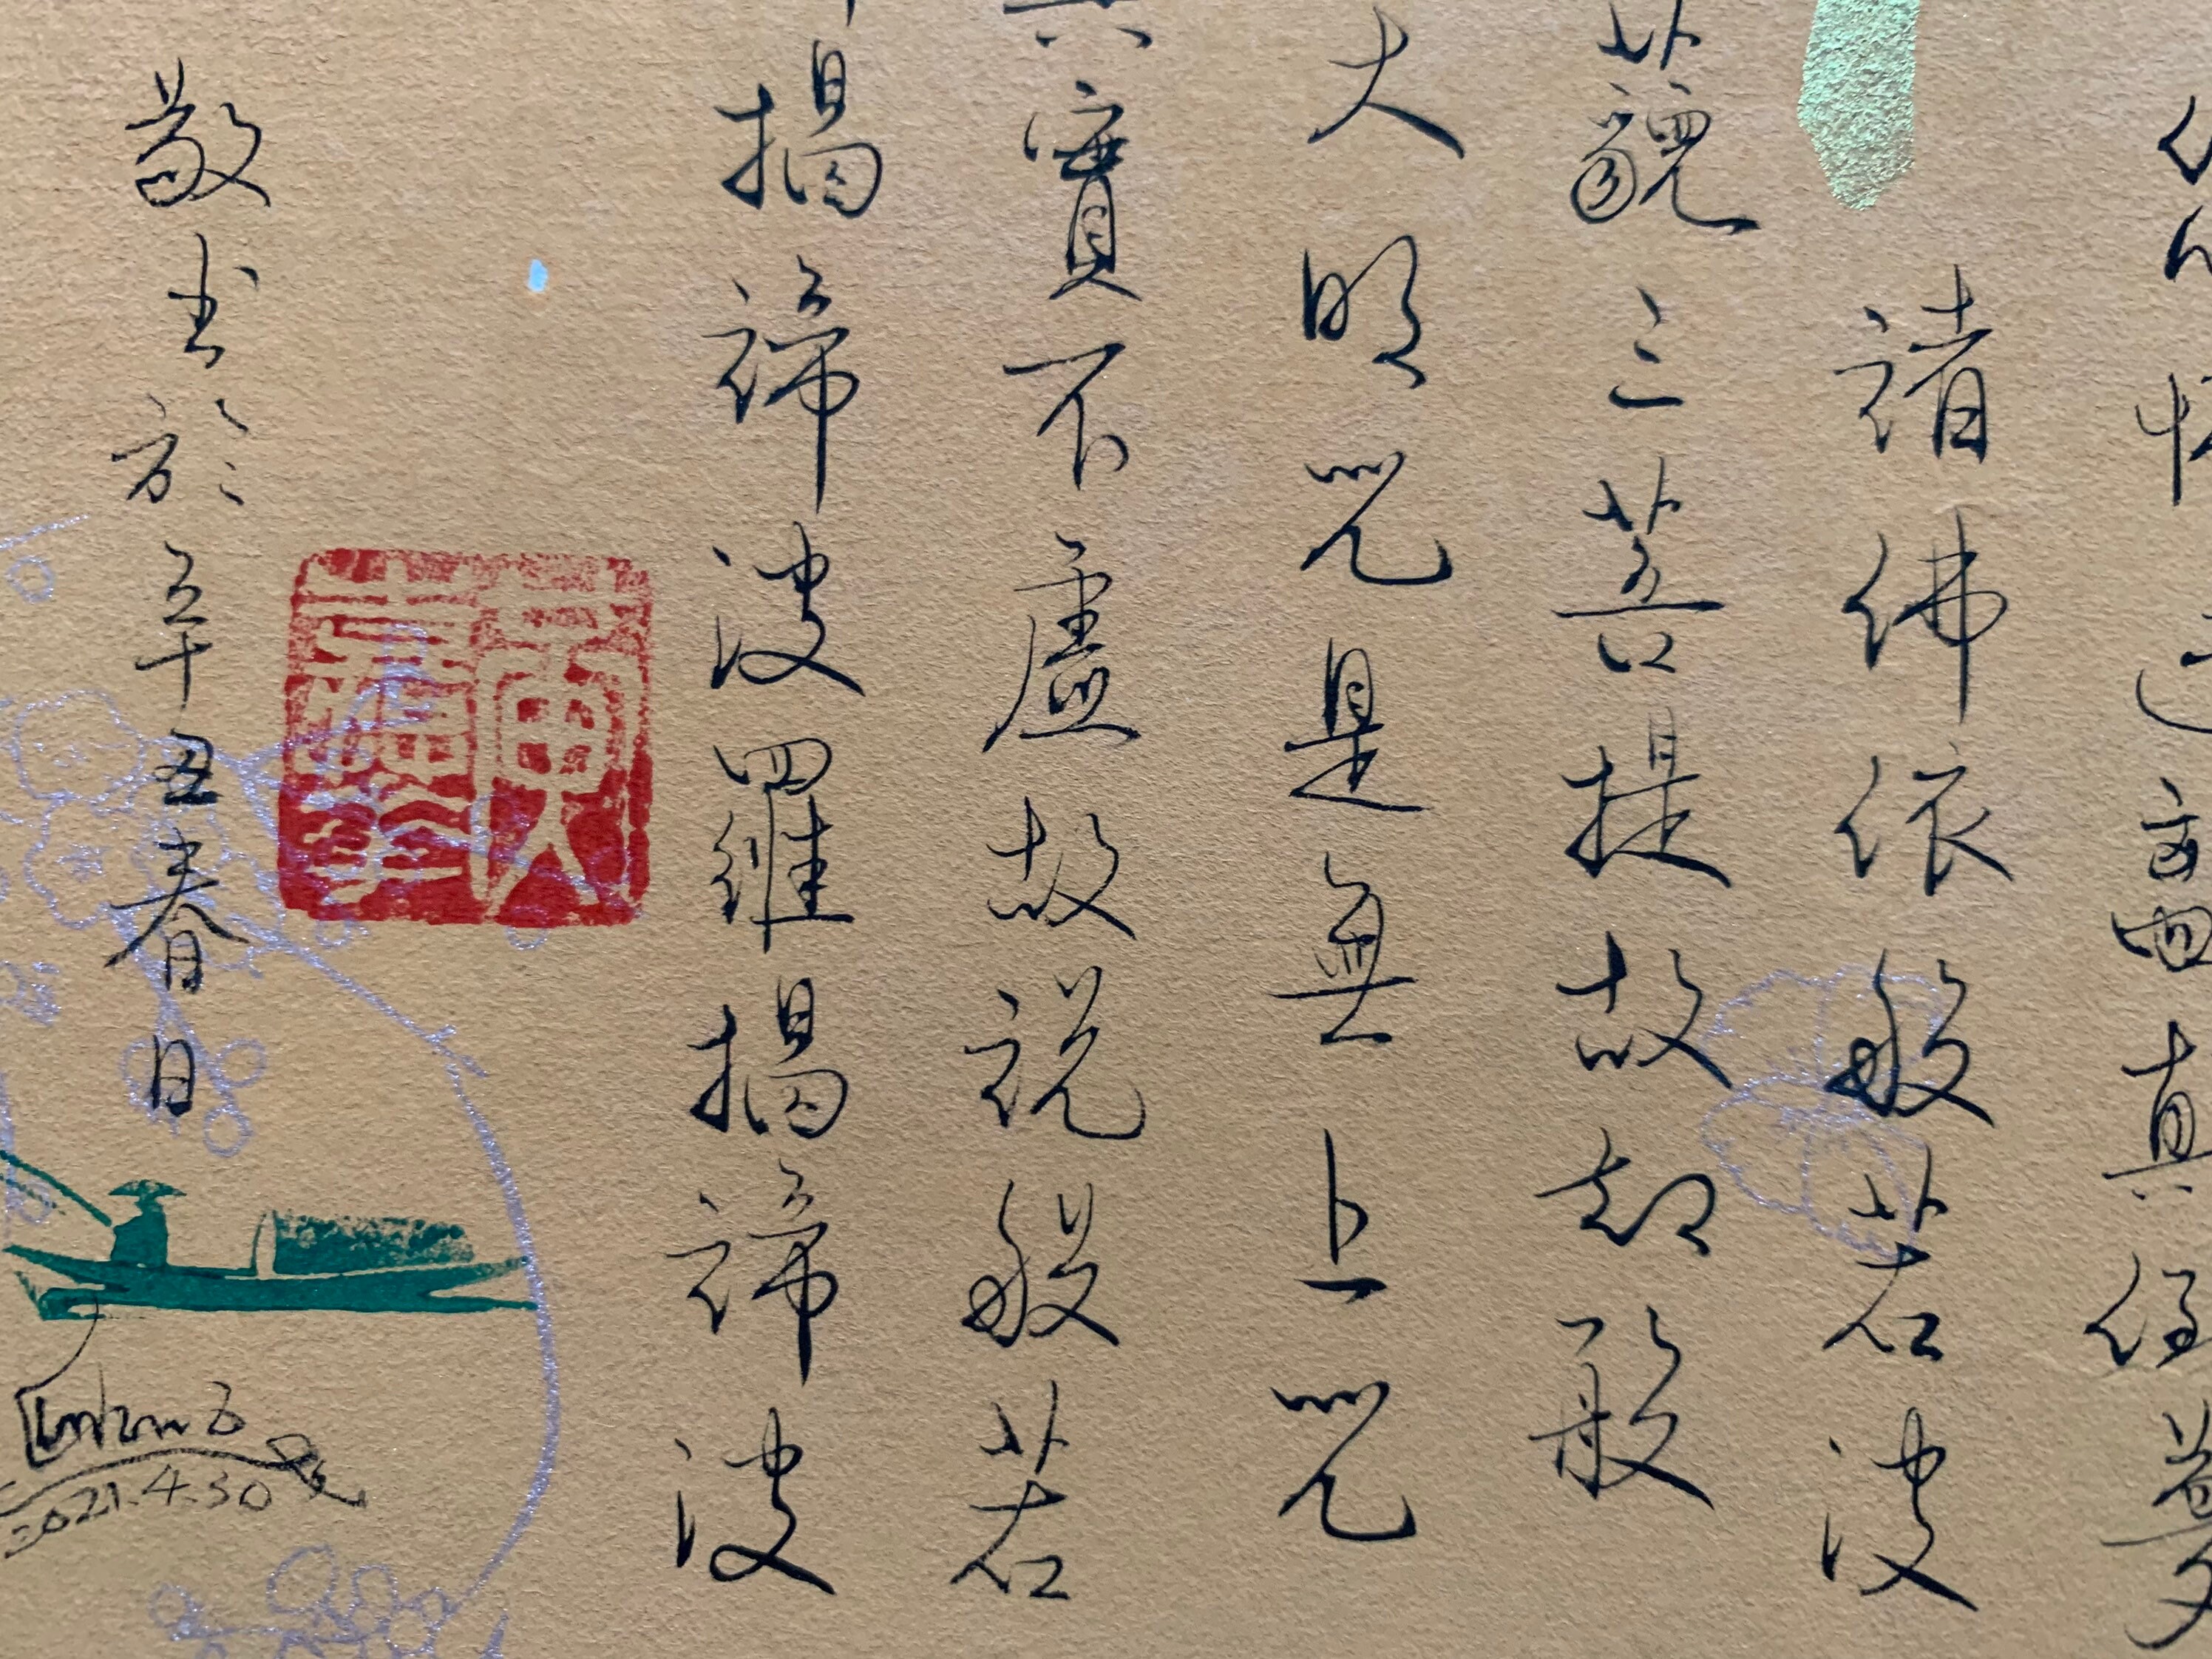 倒夢
諸佛依般若波
藐三菩提故知般
大明咒是無上咒
實不虛故說般若
揭諦波羅揭諦波
敬书於辛丑春日
2021.4.30